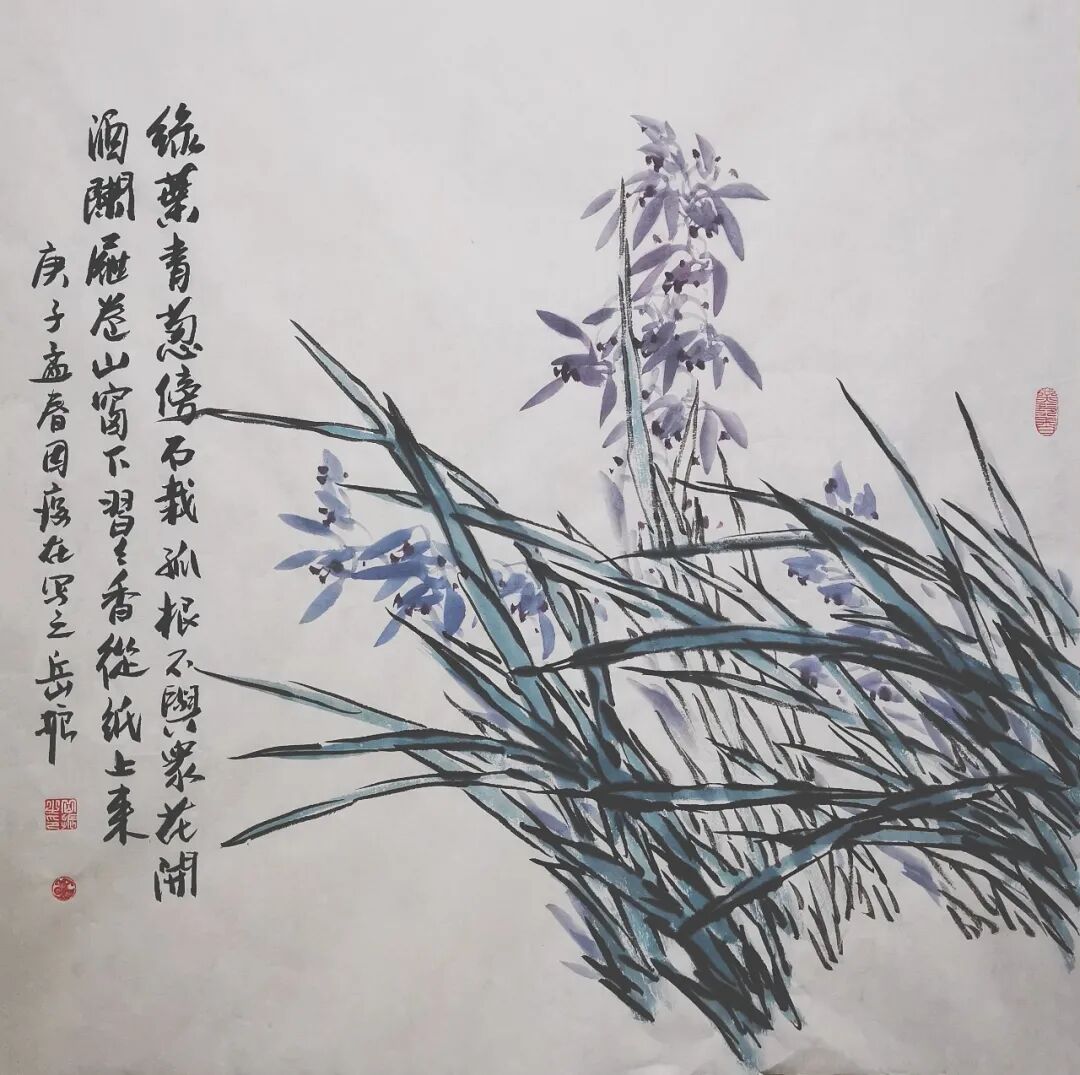 綠葉青葱傍石栽孤根不與眾花開
酒闌展卷山窗下習々香從紙上来
庚子孟春因疫在写之岳振